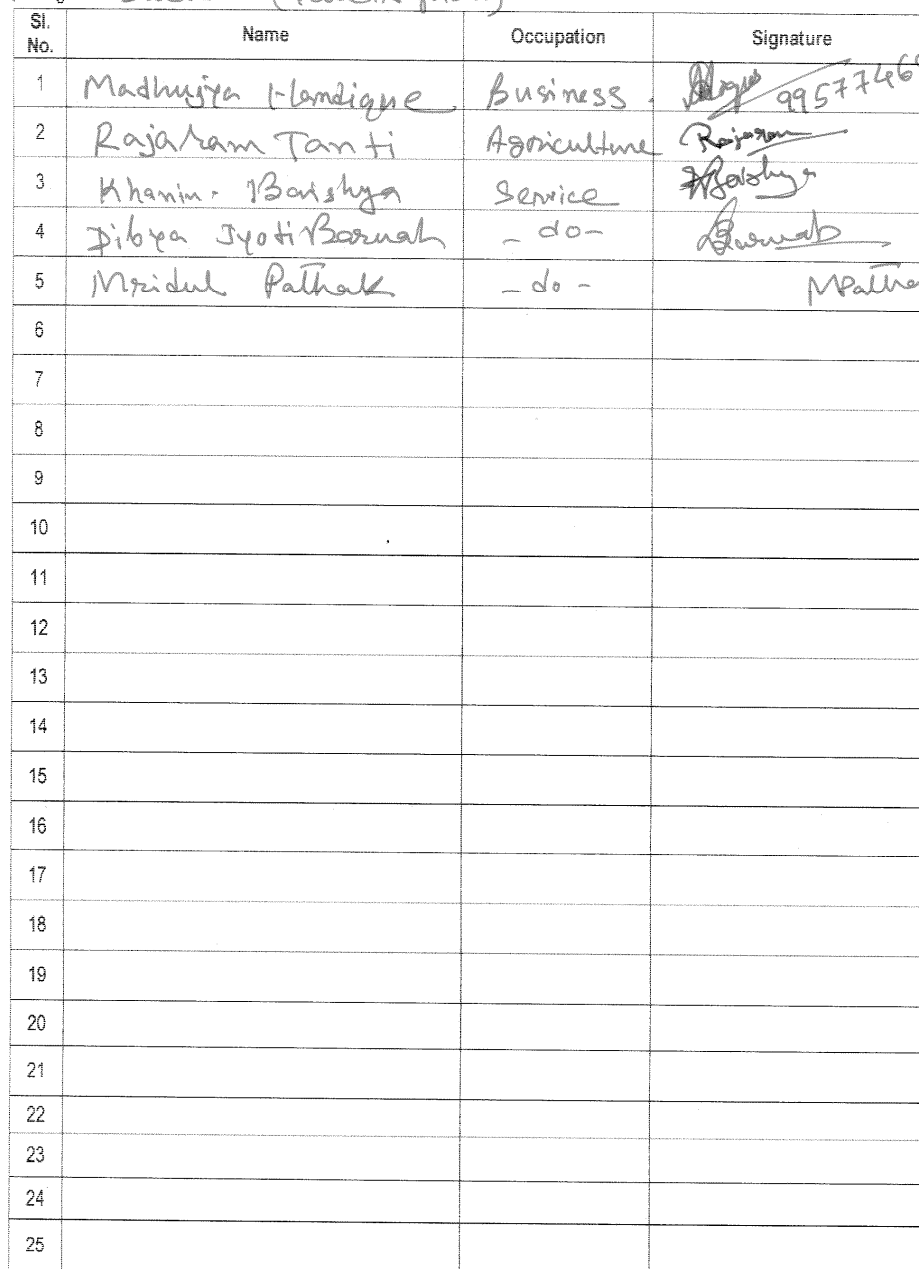 Sl. No. Name Occupation Signature
1 Madhujya Handique Business. 9957746
2 Rajaram Tanti Agoriculture Rajaram
3 Khanin. Baishya Service Baishya
4 Dibya Jyoti Baruah - do - Baruah
5 Mridul Pathak - do - MPatha
6
7
8
9
10
11
12
13
14
15
16
17
18
19
20
21
22
23
24
25